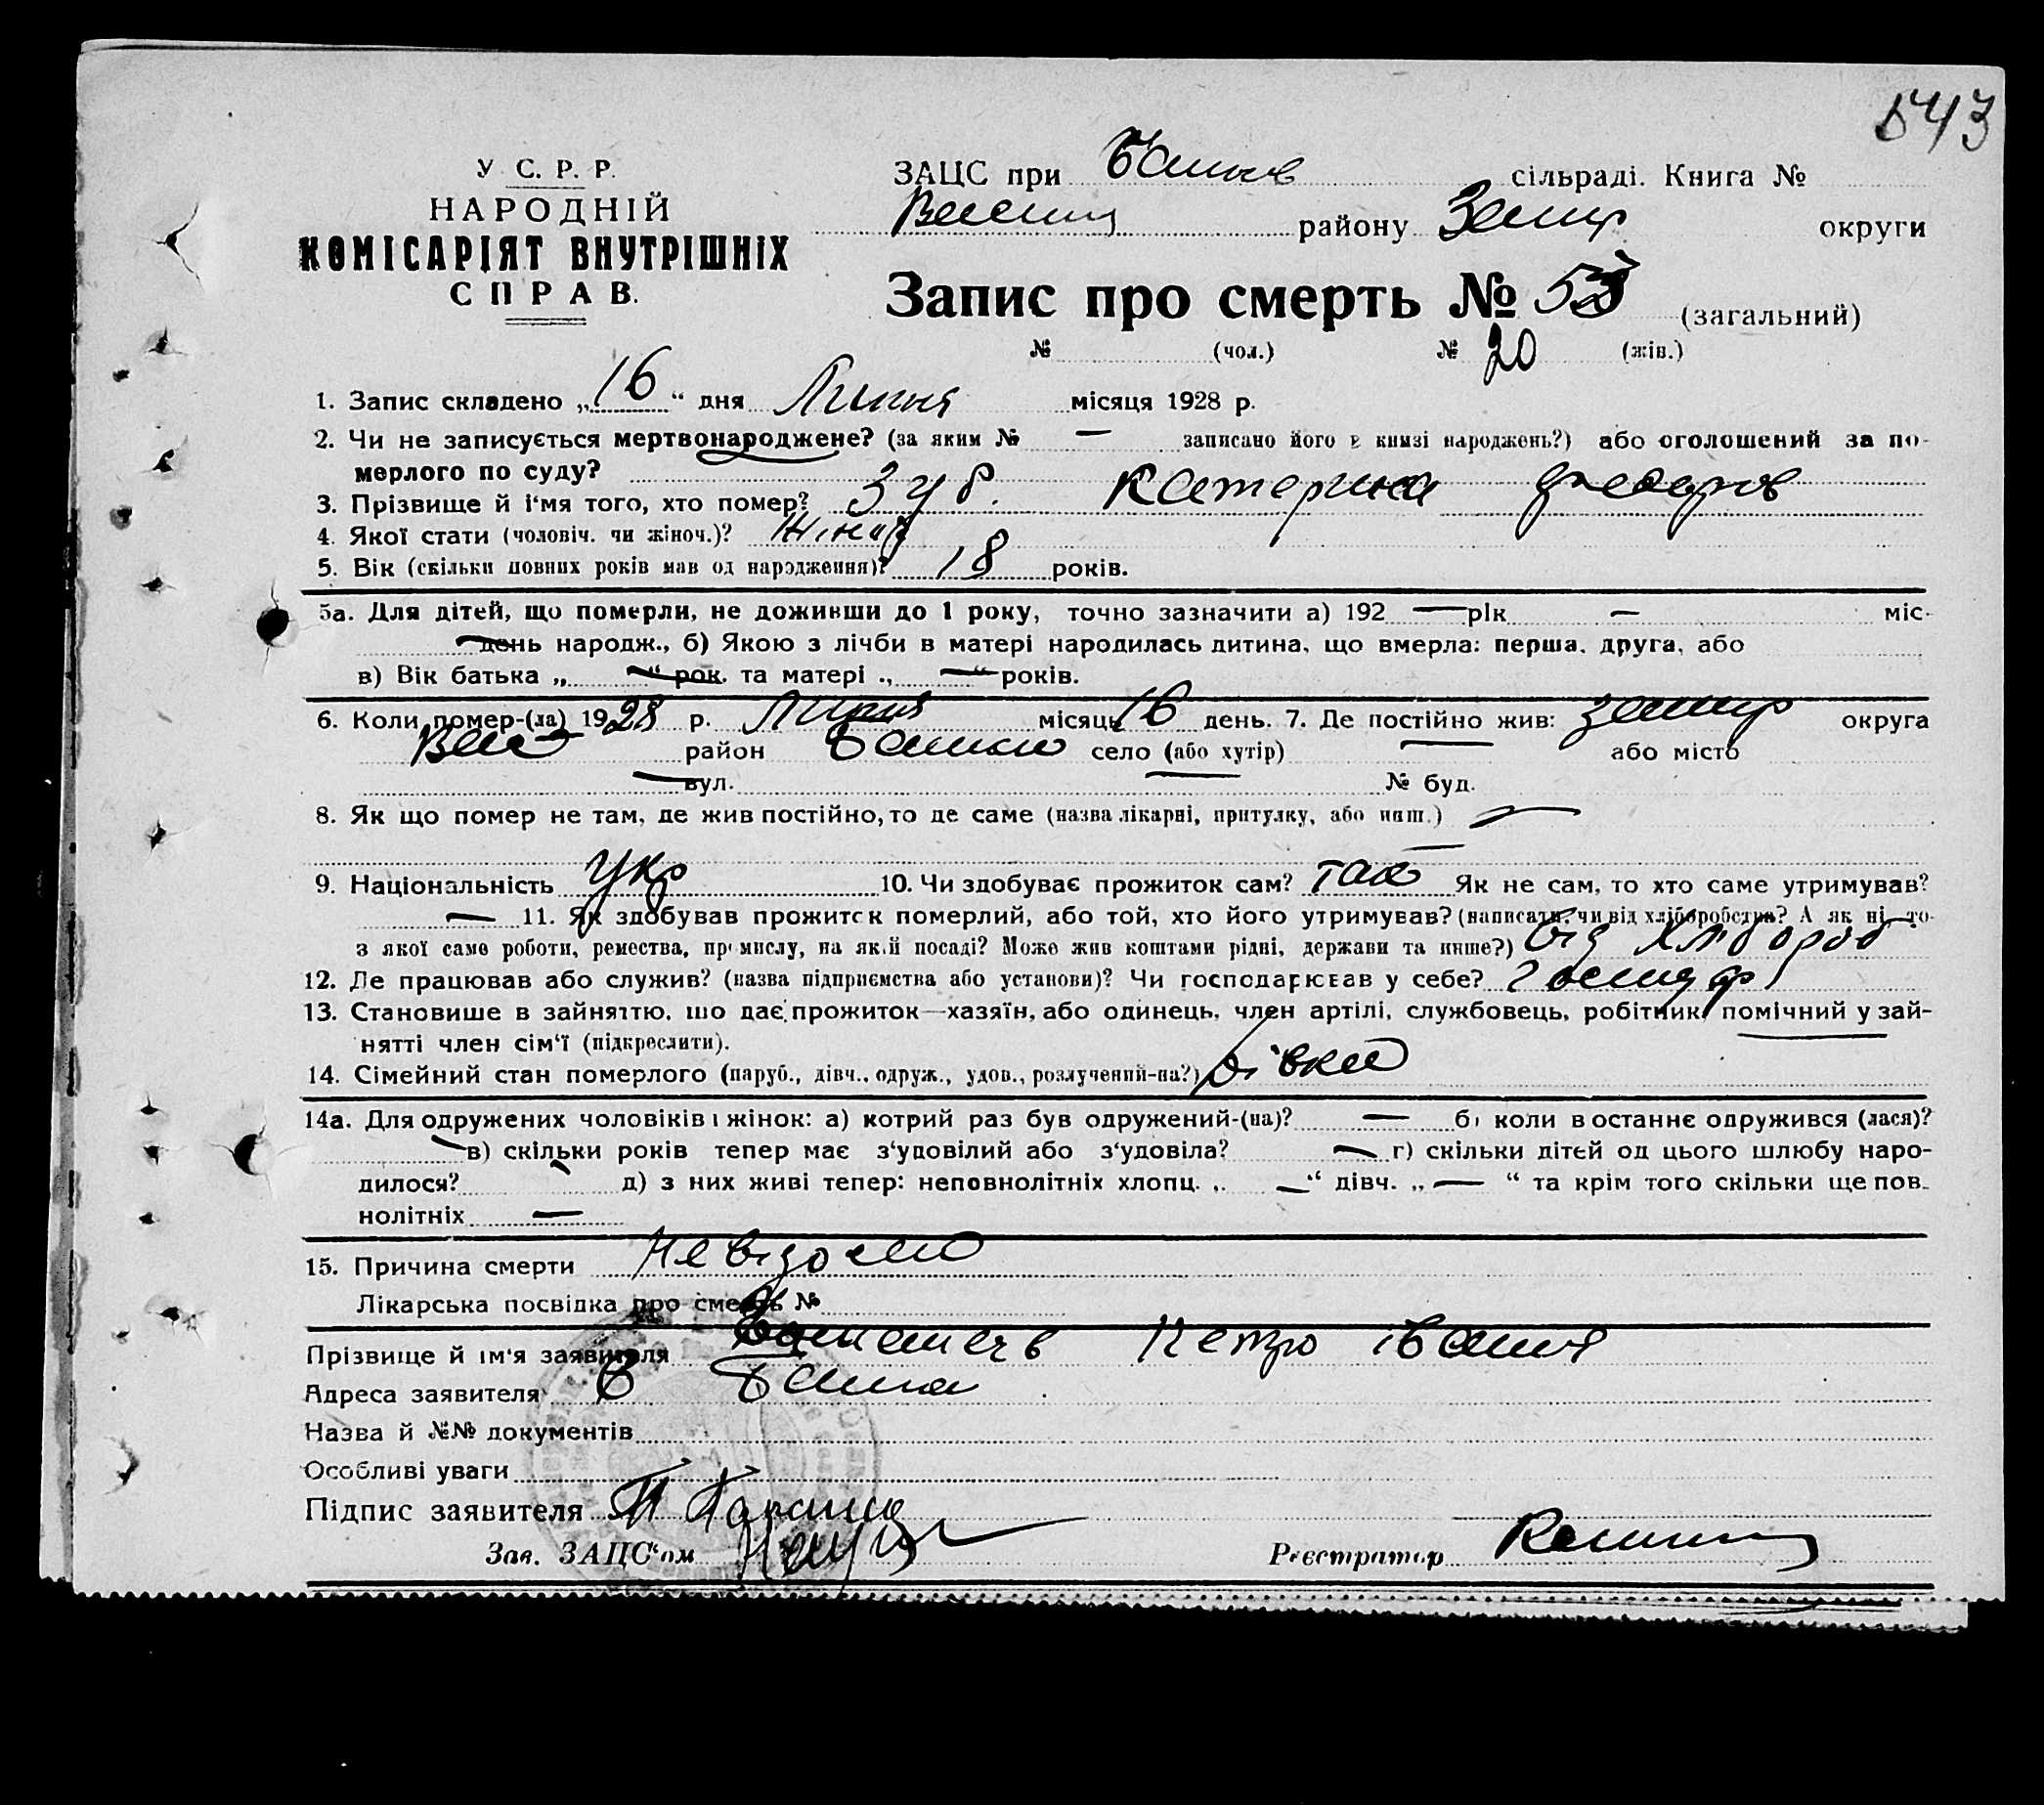 543
У. С. Р. Р.
НАРОДНІЙ
КОМІСАРІЯТ ВНУТРІШНІХ
СПРАВ.
ЗАЦС при сільраді. Книга №
району округи
Запис про смерть № (загальний)
№ (чол.) № 20 (жін.)
1. Запис складено „16“ дня Липня місяця 1928 р.
2. Чи не записується мертвонароджене? (за яким № — записано його в книзі народжень?) або оголошений за по-
мерлого по суду?
3. Прізвище й і'мя того, хто помер? Зуб. Катерина Федоров
4. Якої стати (чоловіч. чи жіноч.)? Жіноч
5. Вік (скільки повних років мав од народження)? 18 років.
5а. Для дітей, що померли, не доживши до 1 року, точно зазначити а) 192 — рік — міс.
— день народж., б) Якою з лічби в матері народилась дитина, що вмерла: перша, друга, або
в) Вік батька „ — “ рок. та матері „ — “ років.
6. Коли помер-(ла) 1928 р. Липня місяць 16 день. 7. Де постійно жив: округа
район село (або хутір) — або місто
— вул. — № буд.
8. Як що помер не там, де жив постійно, то де саме (назва лікарні, притулку, або инш.) —
9. Національність Укр 10. Чи здобуває прожиток сам? так Як не сам, то хто саме утримував?
— 11. Як здобував прожиток померлий, або той, хто його утримував? (написати, чи від хліборобства? А як ні, то
з якої саме роботи, ремества, промислу, на якій посаді? Може жив коштами рідні, держави та инше?) від хлібороб
12. Де працював або служив? (назва підприємства або установи)? Чи господарював у себе?
13. Становище в зайняттю, що дає прожиток—хазяїн, або одинець, член артілі, службовець, робітник, помічний у зай-
нятті член сім'ї (підкреслити).
14. Сімейний стан померлого (паруб., дівч., одруж., удов., розлучений-на?) дівка
14а. Для одружених чоловіків і жінок: а) котрий раз був одружений-(на)? — б) коли в останнє одружився (лася)?
— в) скільки років тепер має з'удовілий або з'удовіла? — г) скільки дітей од цього шлюбу наро-
дилося? д) з них живі тепер: неповнолітніх хлопц. „ — “ дівч. „ — “ та крім того скільки ще пов-
нолітніх —
15. Причина смерти Невідомо
Лікарська посвідка про смерть №
Прізвище й ім'я заявителя Петро
Адреса заявителя
Назва й №№ документів
Особливі уваги
Підпис заявителя
Зав. ЗАЦС'ом Реєстратор